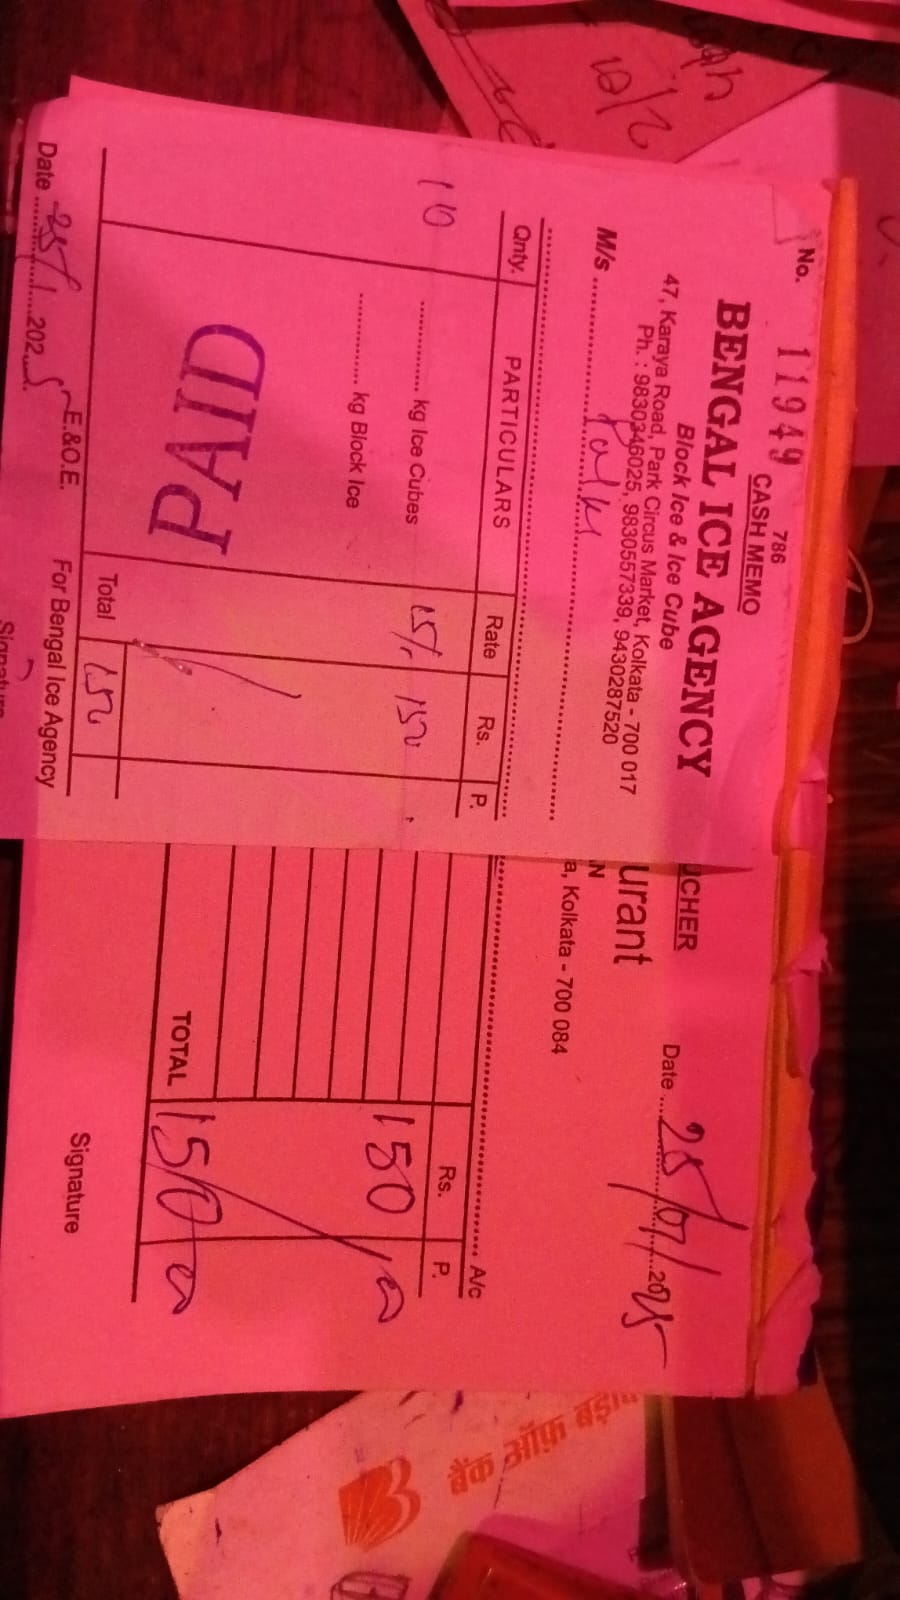 No. 11949
786
CASH MEMO
BENGAL ICE AGENCY
Block Ice & Ice Cube
47, Karaya Road, Park Circus Market, Kolkata - 700 017
Ph. : 9830346025, 9830557339, 9430287520
M/s
Qnty. PARTICULARS Rate Rs. P.
10 kg Ice Cubes 15/- 150
kg Block Ice
PAID
Total 150
E.&O.E. For Bengal Ice Agency
Date 25/1 2025
Signature
UCHER
urant
N
a, Kolkata - 700 084
Date 25/01/2025
A/c
Rs. P.
150
TOTAL 150
Signature
बैंक ऑफ़ बड़ौ